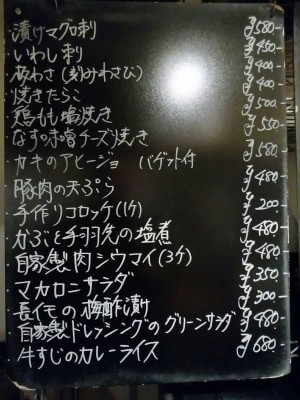 漬けマグロ刺 ¥580-
いわし刺 ¥450-
板わさ(刻みわさび) ¥400-
焼きたらこ ¥400-
鶏もも塩焼き ¥500-
なすの味噌チーズ焼き ¥550-
カキのアヒージョ バゲット付 ¥580-
豚肉の天ぷら ¥480-
手作りコロッケ(1ケ) ¥200-
かぶと手羽先の塩煮 ¥480-
自家製肉シウマイ(3ケ) ¥480-
マカロニサラダ ¥350-
長イモの梅酢漬 ¥300-
自家製ドレッシングのグリーンサラダ ¥480-
牛すじのカレーライス ¥680-